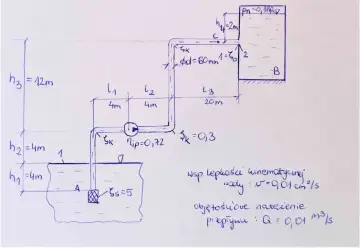 h₄=2m
B
1=ζ₀ 2
c
ζk
ϕd=80mm
h₃=12m
l₁
l₂
l₃
4m
4m
20m
ζk
ηp=0,72
ζk=0,3
h₂=4m
1
h₁=4m
A
ζs=5
wsp lepkości kinematycznej
wody: ν=0,01 cm²/s
objętościowe natężenie
przepływu: Q=0,01 m³/s